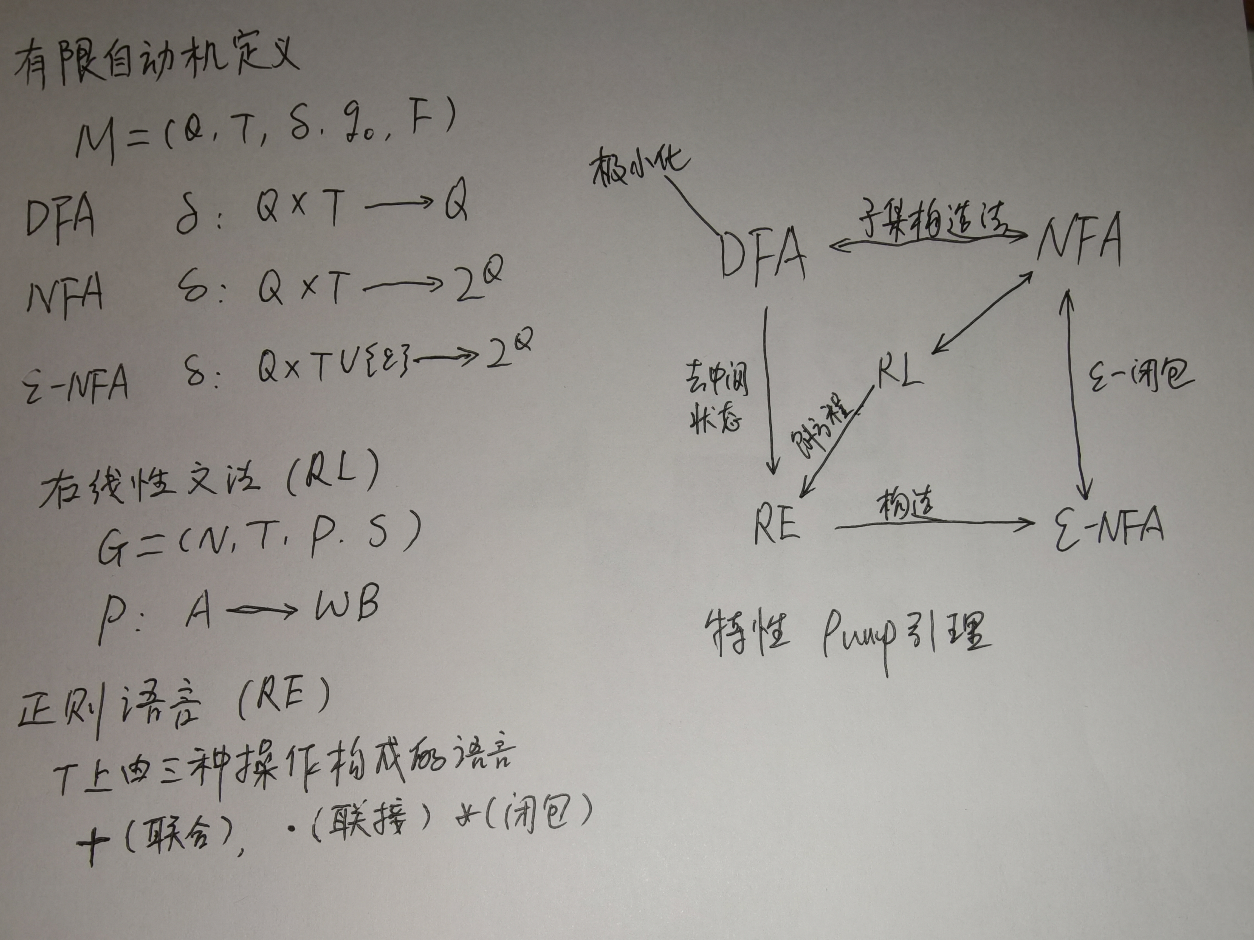 有限自动机定义
M=(Q, T, δ, q₀, F)
DFA δ: Q×T → Q
NFA δ: Q×T → 2^Q
ε-NFA δ: Q×T∪{ε} → 2^Q
右线性文法(RL)
G=(N, T, P, S)
P: A → WB
正则语言(RE)
T上由三种操作构成的语言
+(联合), ·(联接) *(闭包)
极小化
DFA 子集构造法 NFA
去中间
状态
RL
ε-闭包
解方程
RE 构造 ε-NFA
特性 Pump引理